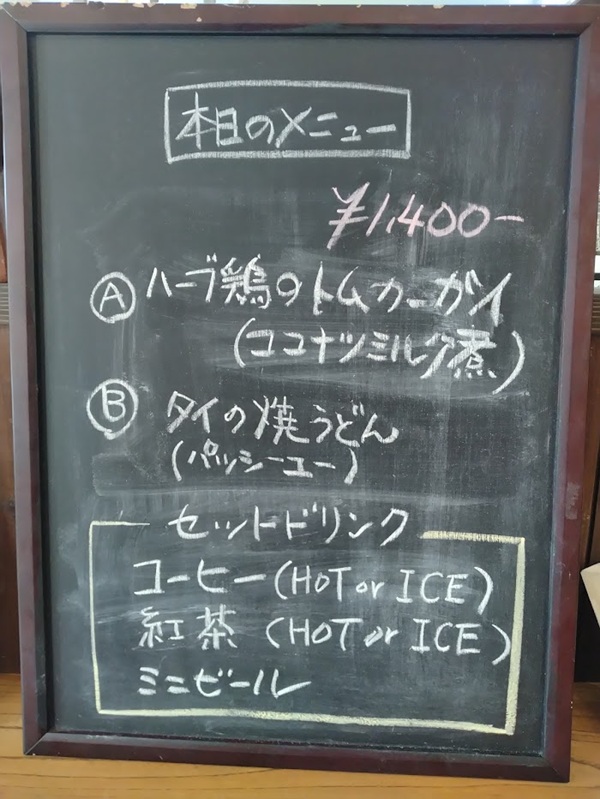 本日のメニュー
¥1,400-
Ⓐ ハーブ鶏のトムカーガイ
(ココナツミルク煮)
Ⓑ タイの焼うどん
(パッシーユー)
セットドリンク
コーヒー(HOT or ICE)
紅茶 (HOT or ICE)
ミニビール